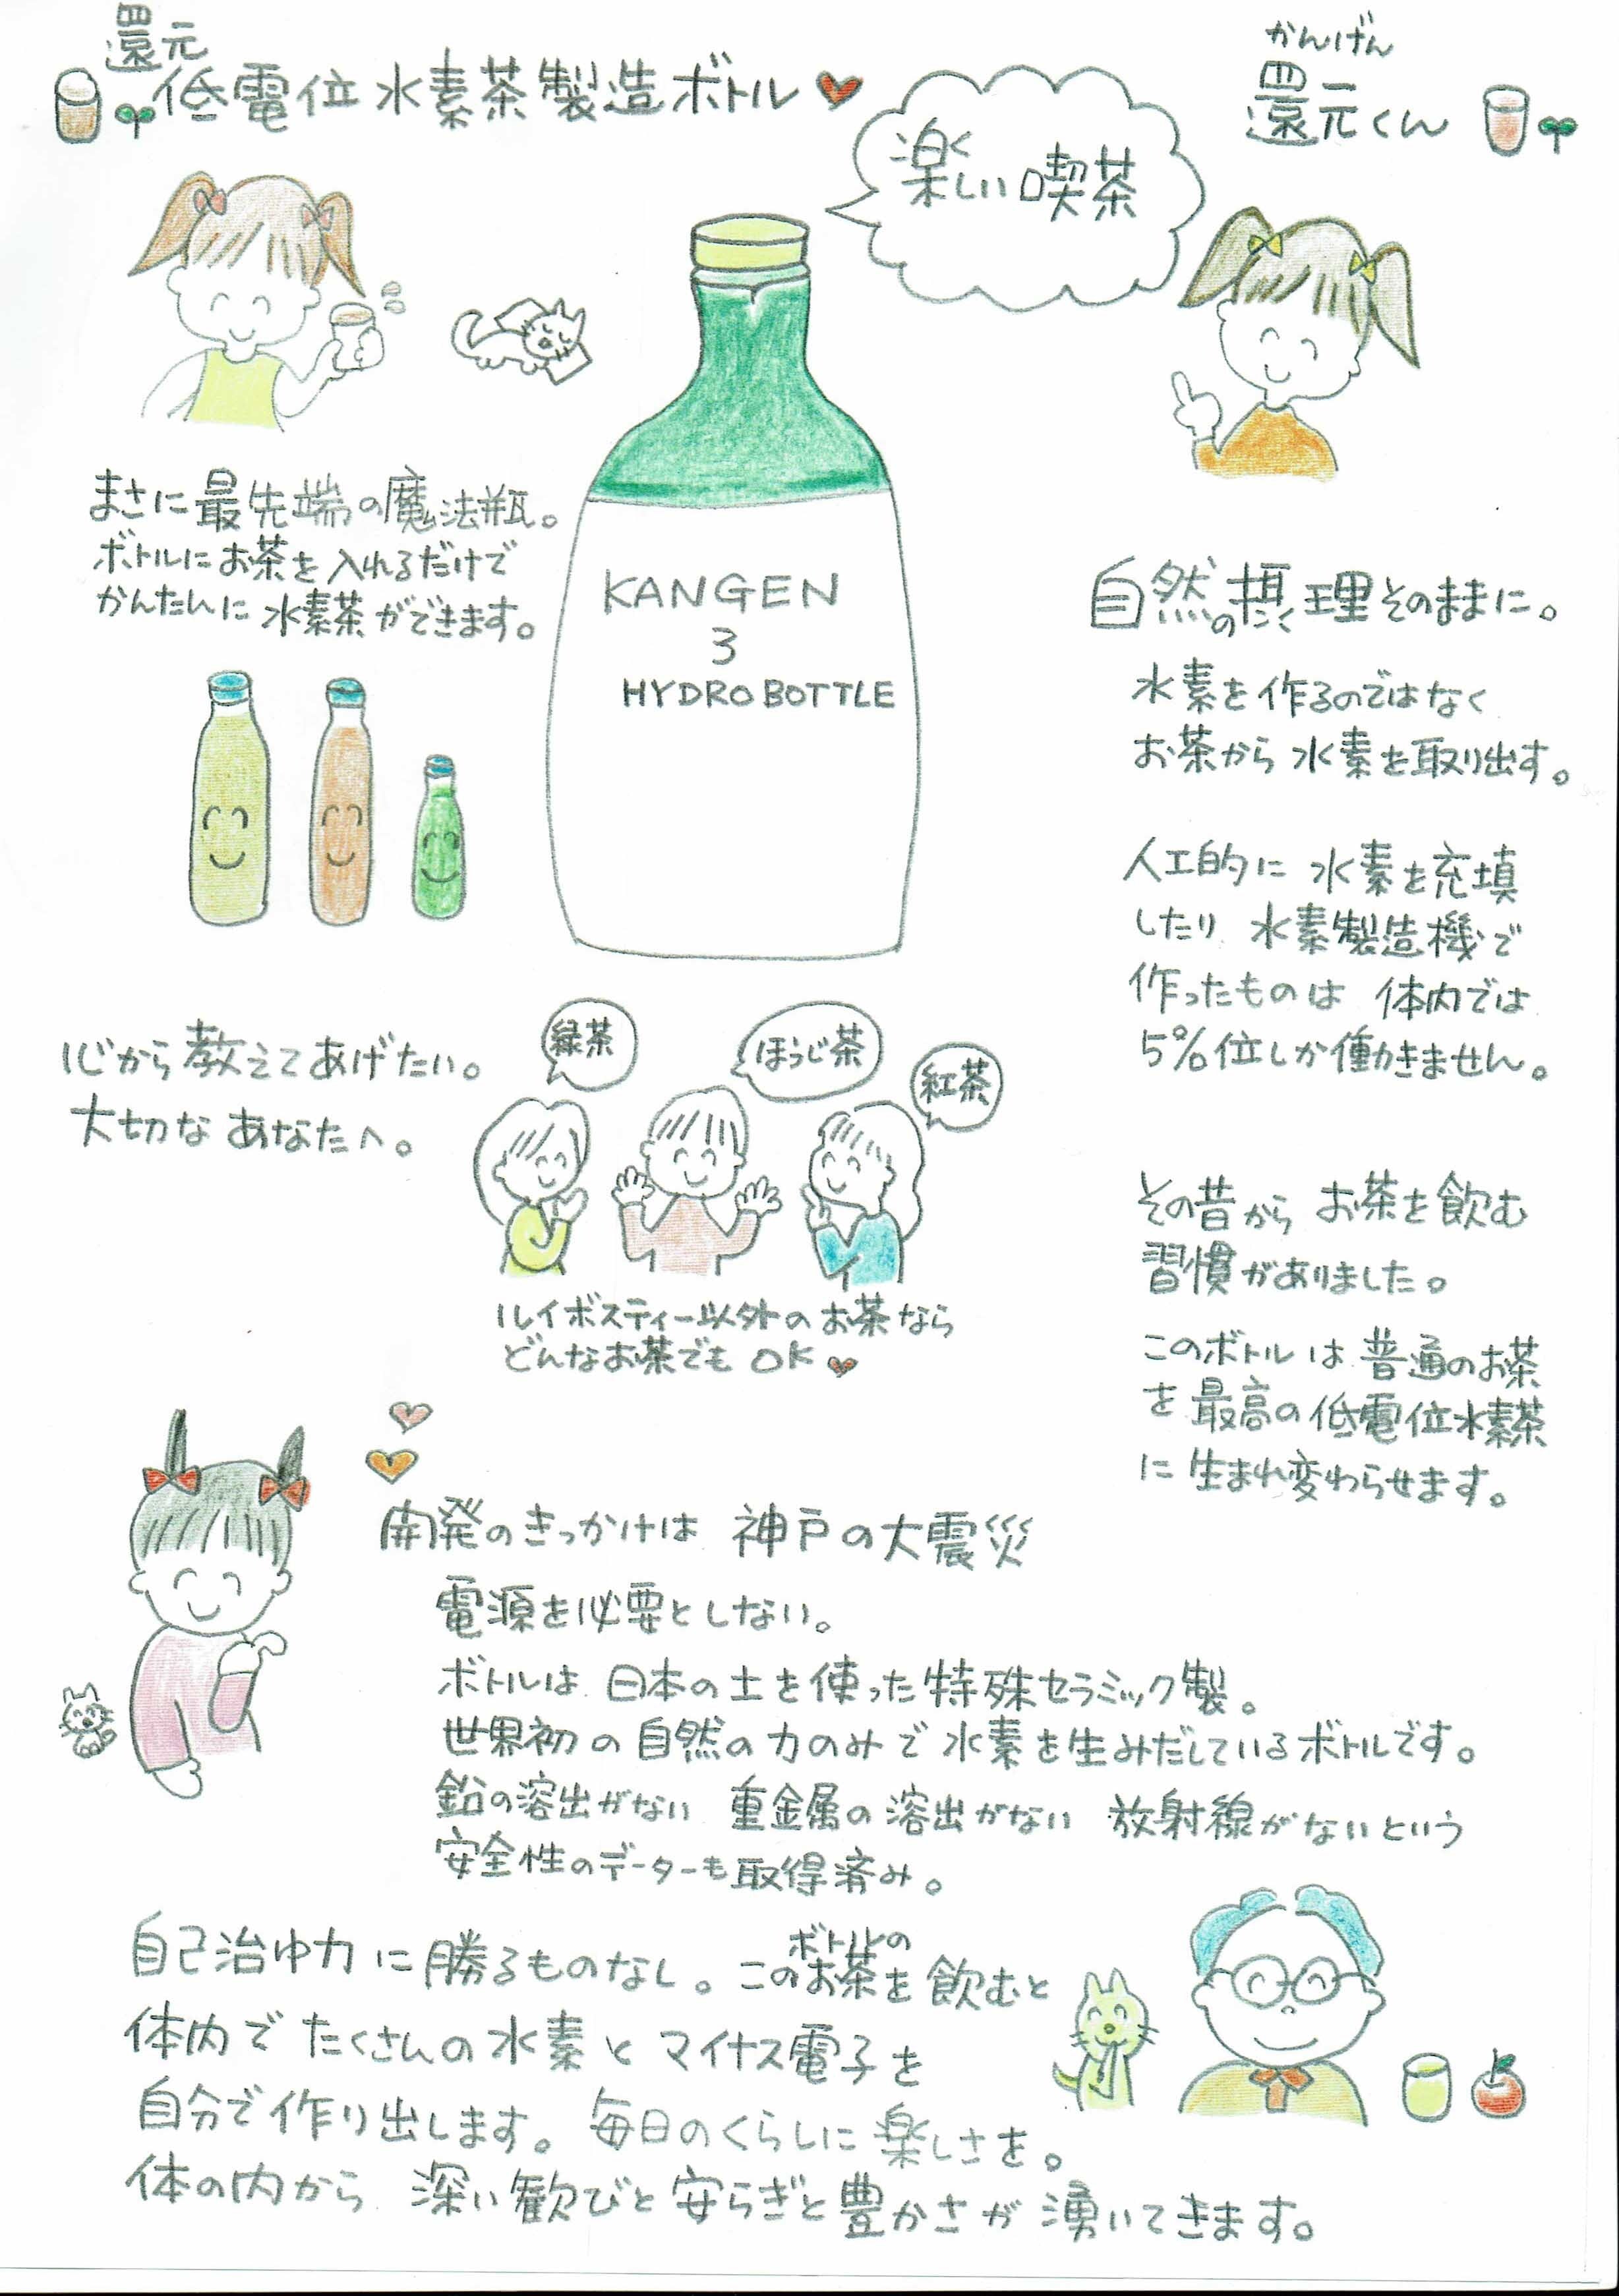 還元
低電位水素茶製造ボトル
かんげん
還元くん
楽しい喫茶
く
まさに最先端の魔法瓶。
ボトルにお茶を入れるだけで
かんたんに水素茶ができます。
KANGEN
3
HYDRO BOTTLE
自然の摂理そのままに。
水素を作るのではなく
お茶から水素を取り出す。
人工的に水素を充填
したり 水素製造機で
作ったものは 体内では
5%位しか働きません。
その昔から お茶を飲む
習慣がありました。
このボトルは普通のお茶
を最高の低電位水素茶
に生まれ変わらせます。
心から教えてあげたい。
大切なあなたへ。
緑茶
ほうじ茶
紅茶
ルイボスティー以外のお茶なら
どんなお茶でもOK
開発のきっかけは 神戸の大震災
電源を必要としない。
ボトルは 日本の土を使った特殊セラミック製。
世界初の自然の力のみで水素を生みだしているボトルです。
鉛の溶出がない 重金属の溶出がない 放射線がないという
安全性のデーターも取得済み。
自己治ゆ力に勝るものなし。このボトルのお茶を飲むと
体内でたくさんの水素とマイナス電子を
自分で作り出します。毎日のくらしに楽しさを。
体の内から 深い歓びと安らぎと豊かさが湧いてきます。